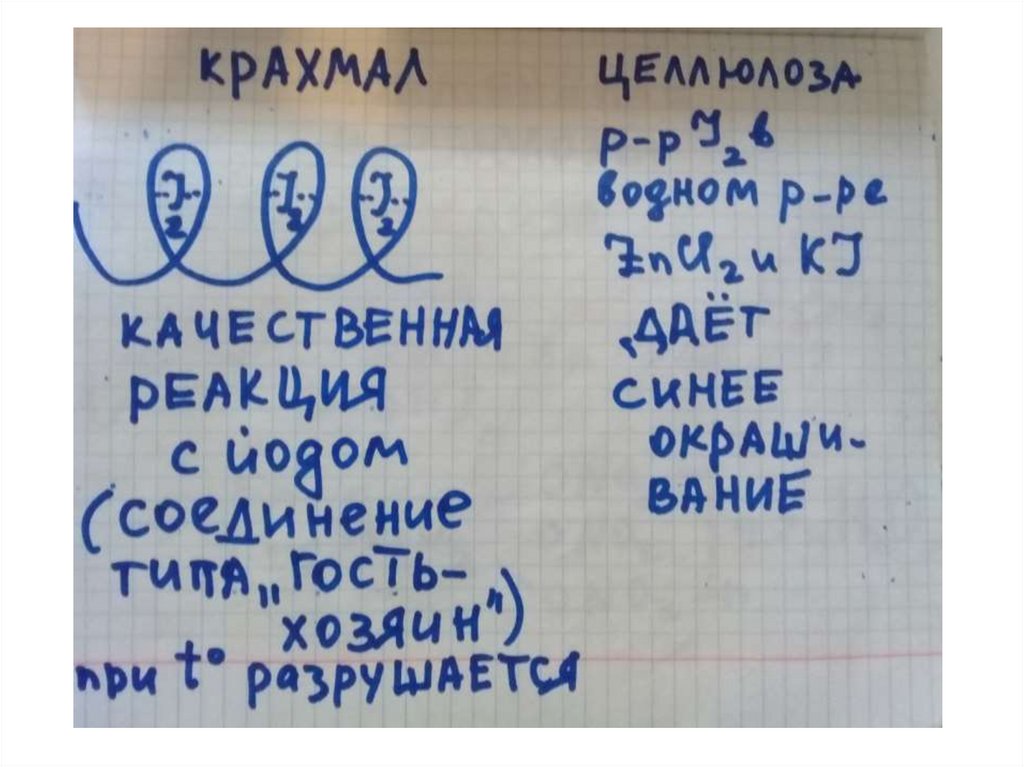 КРАХМАЛ
..J2..
..J2..
..J2..
КАЧЕСТВЕННАЯ
РЕАКЦИЯ
с йодом
(соединение
типа „гость-
хозяин")
при t° разрушается
ЦЕЛЛЮЛОЗА
р-р J2 в
водном р-ре
ZnCl2 и KJ
ДАЁТ
СИНЕЕ
ОКРАШИ-
ВАНИЕ